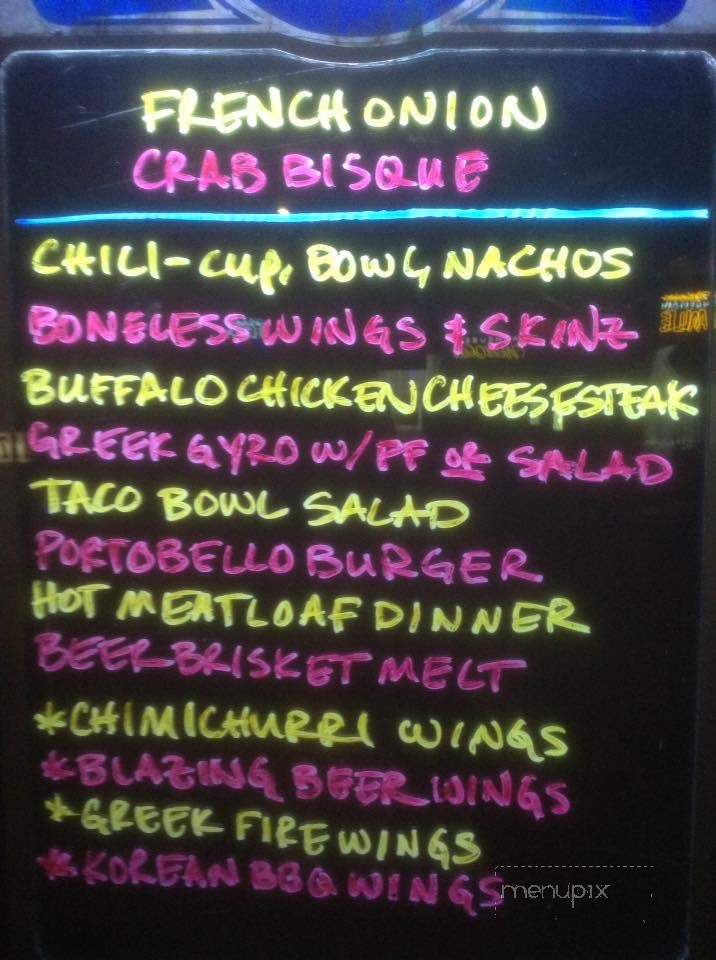 FRENCH ONION
CRAB BISQUE
CHILI - CUP, BOWL, NACHOS
BONELESS WINGS & SKINZ
BUFFALO CHICKEN CHEESESTEAK
GREEK GYRO W/ FF OR SALAD
TACO BOWL SALAD
PORTOBELLO BURGER
HOT MEATLOAF DINNER
BEER BRISKET MELT
*CHIMICHURRI WINGS
*BLAZING BEER WINGS
*GREEK FIRE WINGS
*KOREAN BBQ WINGS
menupix